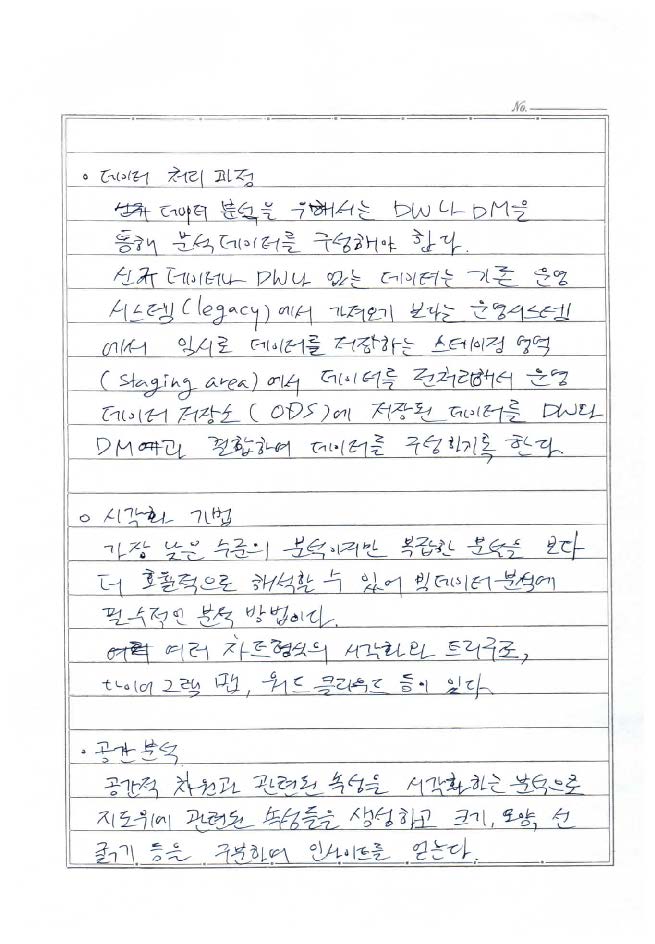 No.
◦ 데이터 처리 과정
데이터 분석을 위해서는 DW나 DM을
통해 분석데이터를 구성해야 한다.
신규 데이터나 DW나 없는 데이터는 기존 운영
시스템(legacy)에서 가져오기 보다는 운영시스템
에서 임시로 데이터를 저장하는 스테이징 영역
(staging area)에서 데이터를 전처리해서 운영
데이터 저장소(ODS)에 저장된 데이터를 DW와
DM과 결합하여 데이터를 구성하기록 한다.
◦ 시각화 기법
가장 낮은 수준의 분석이지만 복잡한 분석을 보다
더 효율적으로 해석할 수 있어 빅데이터분석에
필수적인 분석 방법이다.
여러 차트형식의 시각화와 트리구조,
그램 맵, 워드 클라우드 등이 있다.
· 공간분석
공간적 차원과 관련된 속성을 시각화하는 분석으로
지도위에 관련된 속성들을 생성하고 크기, 모양, 선
굵기 등을 구분하며 인사이트를 얻는다.